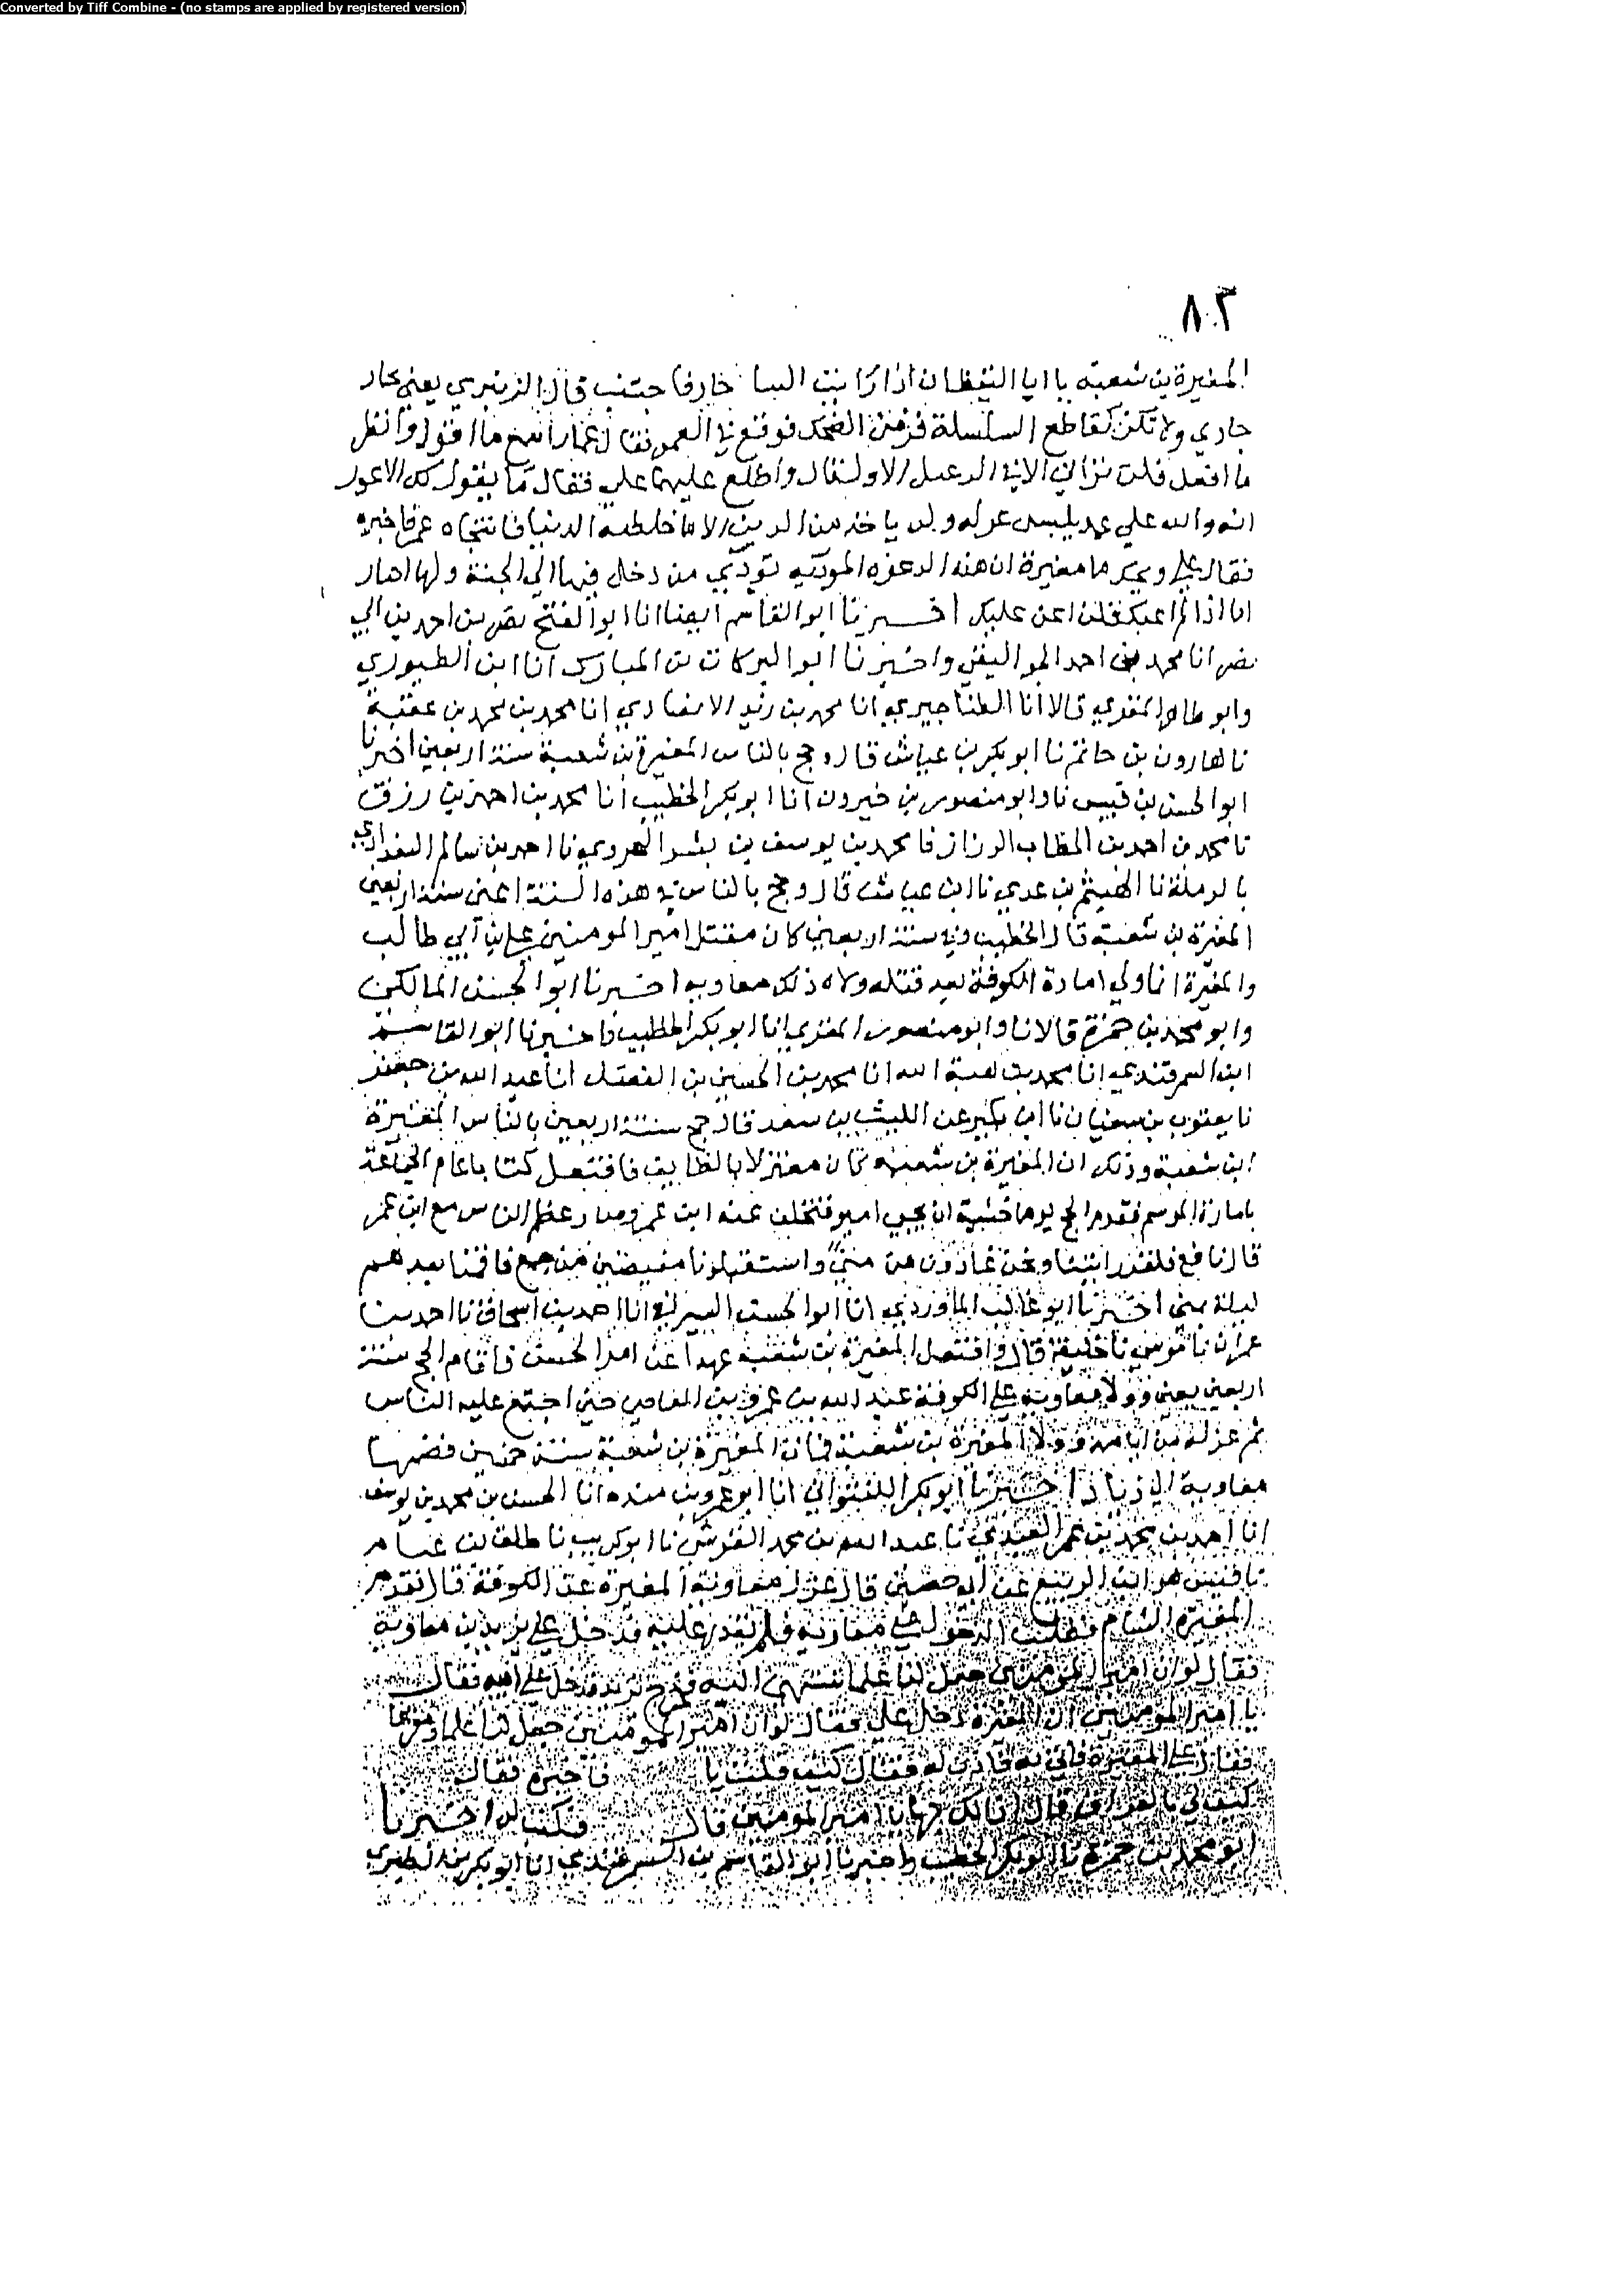 Converted by Tiff Combine - (no stamps are applied by registered version)
٨٠٣
المغيرة بن شعبة يا ابا اليقظان اذا رأيت السا خارفا جتنب قال الزبيري يعني جار
جاري ولا تكن كقاطع السلسلة فر من الضحك فوقع في العمر فقال عمار اسمع ما اقول وانظر
ما افعل فلن تراني الا في الرعيل الاول قال واطلع عليهما علي فقال ما يقول لك الاعور
انه والله علي عمد يلبس عوله ولن ياخذ من الدين الا ما خلطته الدنيا فانتجاه عمر فاخبره
فقال علي ويحك يا مغيرة ان هذه الدعوه الموديه تودي من دخل فيها الي الجنة ولها اصار
اما اذا لم اعبك فلن اعن عليك اخبرنا ابو القاسم ايضا انا ابو الفتح نصر بن احمد بن ابي
نصر انا محمد بن احمد الجواليقي واخبرنا ابو البركات بن المبارك انا ابن الطيوري
وابو طاهر المقري قالا انا الطناجيري انا محمد بن زيد الانصاري انا محمد بن محمد بن عقبة
نا هارون بن حاتم نا ابو بكر بن عياش قال وحج بالناس المغيرة بن شعبة سنة اربعين اخبرنا
ابو الحسن بن قبيس نا وابو منصور بن خيرون انا ابو بكر الخطيب انا محمد بن احمد بن رزق
نا محمد بن احمد بن الخطاب الرزاز نا محمد بن يوسف بن بشر الهروي نا احمد بن سالم البغدادي
بالرملة نا الهيثم بن عدي نا ابن عياش قال وحج بالناس في هذه السنة اعني سنة اربعين
المغيرة بن شعبة قال الخطيب وفي سنة اربعين كان مقتل امير المومنين علي بن ابي طالب
والمغيرة انما ولي امارة الكوفة بعد قتله ولاه ذلك معاوية اخبرنا ابو الحسن المالكي
وابو محمد بن حمزة قالا نا وابو منصور المقري انا ابو بكر الخطيب فاخبرنا ابو القاسم
ابن السمرقندي انا محمد بن هبة الله انا محمد بن الحسين بن الفضل انا عبد الله بن جعفر
نا يعقوب بن سفيان نا ابن بكير عن الليث بن سعد قال حج سنة اربعين بالناس المغيرة
ابن شعبة وذلك ان المغيرة بن شعبة كان معتزلا بالطايف فافتعل كتابا عام الجماعة
بامارة الموسم فقدم الحج يوما خشية ان يجي امير فتخلف عنه ابن عمر وصار عظم الناس مع ابن عمر
قال نافع فلقد رايتنا ونحن غادون من مني واستقبلونا مفيضين من جمع فاقمنا بعدهم
ليلة بمني اخبرنا ابو غالب الماوردي انا ابو الحسن السيرافي انا احمد بن اسحاق نا احمد بن
عمران نا موسي نا خليفة قال وافتعل المغيرة بن شعبة عهدا عن امر الحسن فاقام الحج سنة
اربعين يعني وولا معاوية علي الكوفة عبد الله بن عمرو بن العاصي حتي اجتمع عليه الناس
ثم عزله من ايامه وولا المغيرة بن شعبة فمات المغيرة بن شعبة سنة خمسين فضمها
معاوية الي زياد اخبرنا ابو بكر اللفتواني انا ابو عمرو بن منده انا الحسن بن محمد بن يوسف
انا احمد بن محمد بن عمر العبدي نا عبد الله بن محمد القرشي نا ابو كريب نا طلق بن غنام
نا قيس هو ابن الربيع عن ابي حصين قال عزل معاوية المغيرة عن الكوفة قال فقدم
المغيرة الشام فطلب الدخول علي معاوية فلم يقدر عليه فدخل علي يزيد بن معاوية
فقال لو ان امير المومنين جعل لنا علما ننتهي اليه فخرج يزيد فدخل علي ابيه فقال
يا امير المومنين ان المغيرة دخل علي فقال لو ان امير المومنين جعل لنا علما
فقال علي المغيرة فاتي به فاذن له فقال كيف قلت يا فاخبره فقال
كيف لي بالعراق قال انا لك بها يا امير المومنين قال فكتب له اخبرنا
ابو محمد بن حمزة نا ابو بكر الخطيب واخبرنا ابو القاسم بن السمرقندي انا ابو بكر بن الطبري